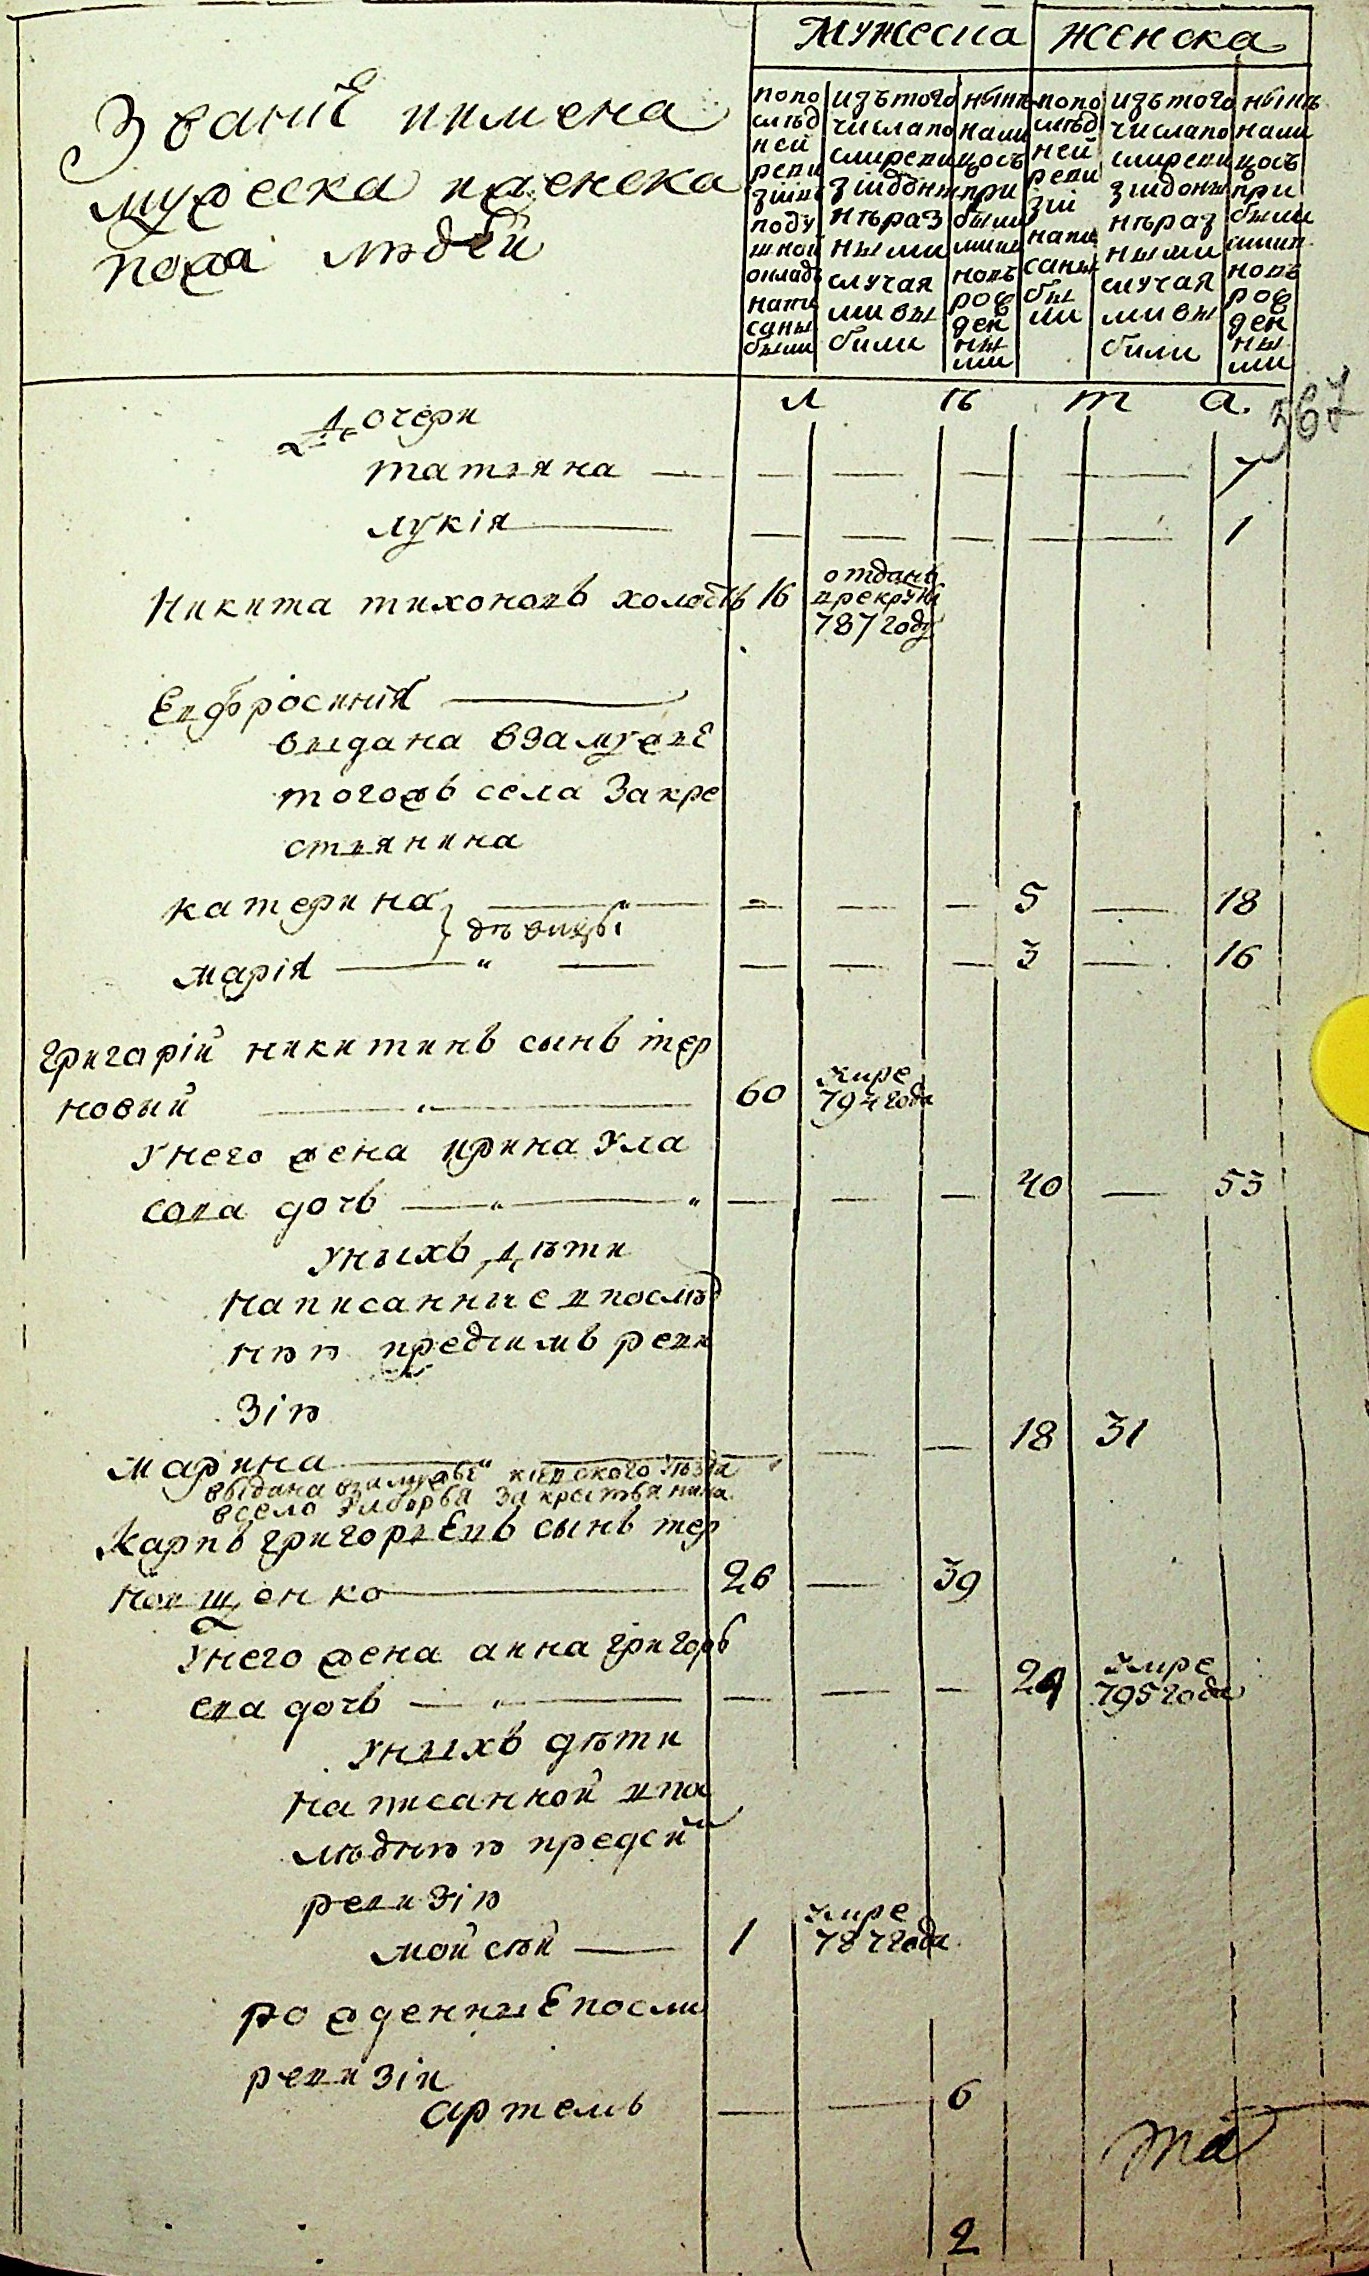 мужеска женска
Званіе иимена
мужеска иженска
пола людей
попо
слѣд
ней
реви
зіив
поду
шной
окладъ
напи
саны
были
изътого
числапо
слиреви
зіидоны
нѣраз
ными
случая
ми вы
были
нынѣ
нали
цось
при
были
ими
новъ
рож
ден
ны
ми
попо
слѣд
ней
реви
зіи
напи
саны
бы
ли
изътого
числапо
слиреви
зіидоны
нѣраз
ными
случая
ми вы
были
нынѣ
нали
цось
при
были
ими
новъ
рож
ден
ны
ми
л ѣ т а.
367
Дочери
татіяна — — — — — — 7
лукія — — — — — — 1
Никита тихоновъ холостъ 16 отданъ
врекруты
787 году
Евфросинія
выдана взамужие
тогожъ села Закре
стьянина
катерина — — — — 5 — 18
дѣвицы
марія — — — — 3 — 16
Григорій никитинъ сынъ тер
новый 60 умре
794 года
Унего жена ирина Ула
сова дочь — — — 40 — 53
Уныхъ дѣти
написанные впослѣд
нѣй предсимъ реви
зіи
марина — — — 18 31
выдана взамужье кіевского уѣзда
всело за крестьянина
Карпъ григорьевъ сынъ тер
новщенко 26 — 39
Унего жена анна григорь
ева дочь — — — 29 умре
795 года
Уныхъ дѣти
написанной впос
лѣднѣй предсей
ревизіи
мойсѣй — 1 умре
787 года
рожденные посли
ревизіи
артемъ — — 6
та
2